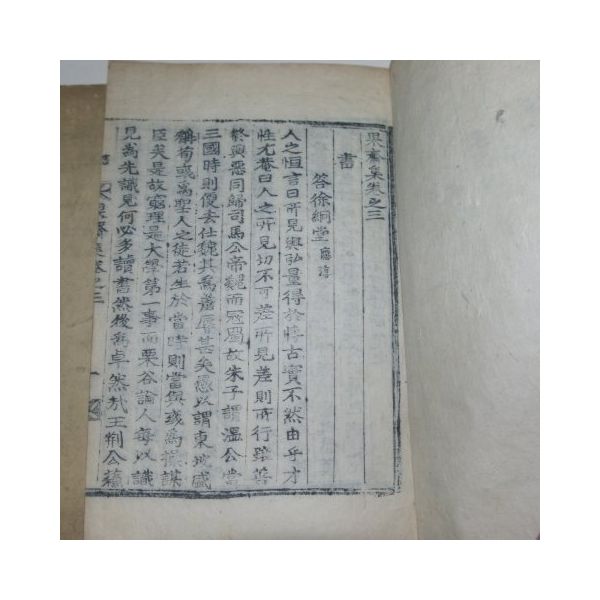 果齋集卷之三
書
答徐絅堂 應淳
人之恒言曰所見與弘量得於博古實不然由乎才
性尤菴曰人之所見切不可差所見差則所行雖善
終與惡同歸司馬公帝魏而寇蜀故朱子謂溫公當
三國時則便去仕魏其爲羞辱甚矣愚以謂東坡盛
稱荀彧爲聖人之徒若生於當時則當與彧爲操謀
臣矣是故窮理是大學第一事而栗谷論人每以識
見爲先識見何必多讀書然後爲卓然哉王荊公蘇
果齋集卷之三 一